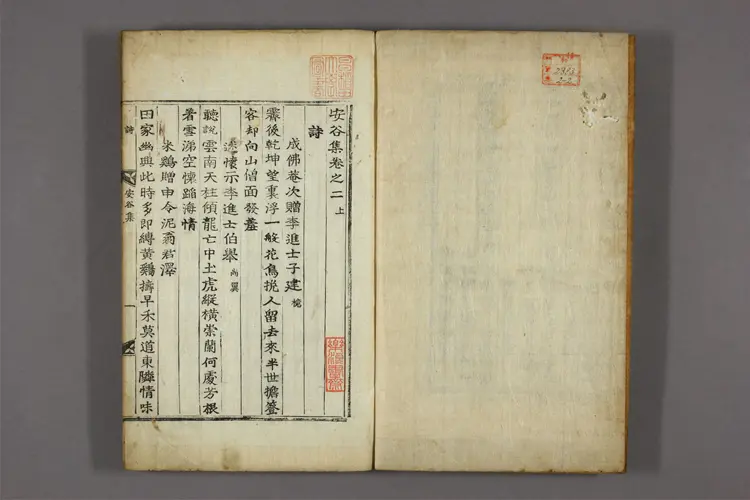 安谷集卷之二 上
詩
成佛菴次贈李進士子建 
霽後乾坤望裏浮一般花鳥挽人留去來半世擔簦
客却向山僧面發羞
述懷示李進士伯擧 尙翼
聽說雲南天柱傾龍亡中土虎縱橫崇蘭何處芳根
着雪涕空懷蹈海情
米鷄贈申令泥翁君澤
田家幽興此時多即縛黃鷄擣早禾莫道東隣情味
詩
安谷集
一